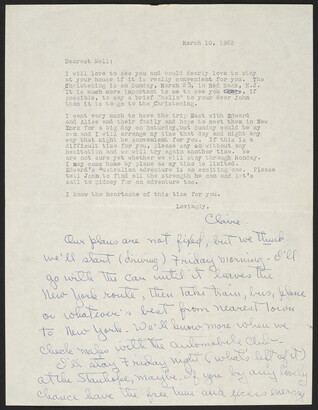 March 10, 1962
Dearest Nell:
I will love to see you and would dearly love to stay
at your house if it is really convenient for you. The
Christening is on Sunday, March 25, in Red Bank, N.J.
It is much more important to me to see you if
possible, to say a brief "hello" to your dear John
than it is to go to the Christening.
I want very much to have the trip East with Edward
and Alice and their family and hope to meet them in New
York for a big day on Saturday, but Sunday could be my
own and I will arrange that day and night and any
way that might be convenient for you. If this is a
difficult time for you, please say so without any
hesitation and we will try again another time. We
are not sure yet whether we will stay through Monday.
I may come home by plane as my time is limited.
Edward's Australian adventure is an exciting one. Please
tell John to find all the strength he can and let's
call to Sidney for an adventure too.
I know the heartache of this time for you.
Lovingly,
Claire
Our plans are not fixed, but we think
we'll start (driving) Friday morning. I'll
go with the car until it leaves the
New York route, then take train, bus, plane
or whatever's best from nearest town
to New York. We'll know more when we
check miles with the Automobile Club.
I'll stay Friday night (what's left of it)
at the Stanhope, maybe. If you by any lucky
chance have the free time and years energy